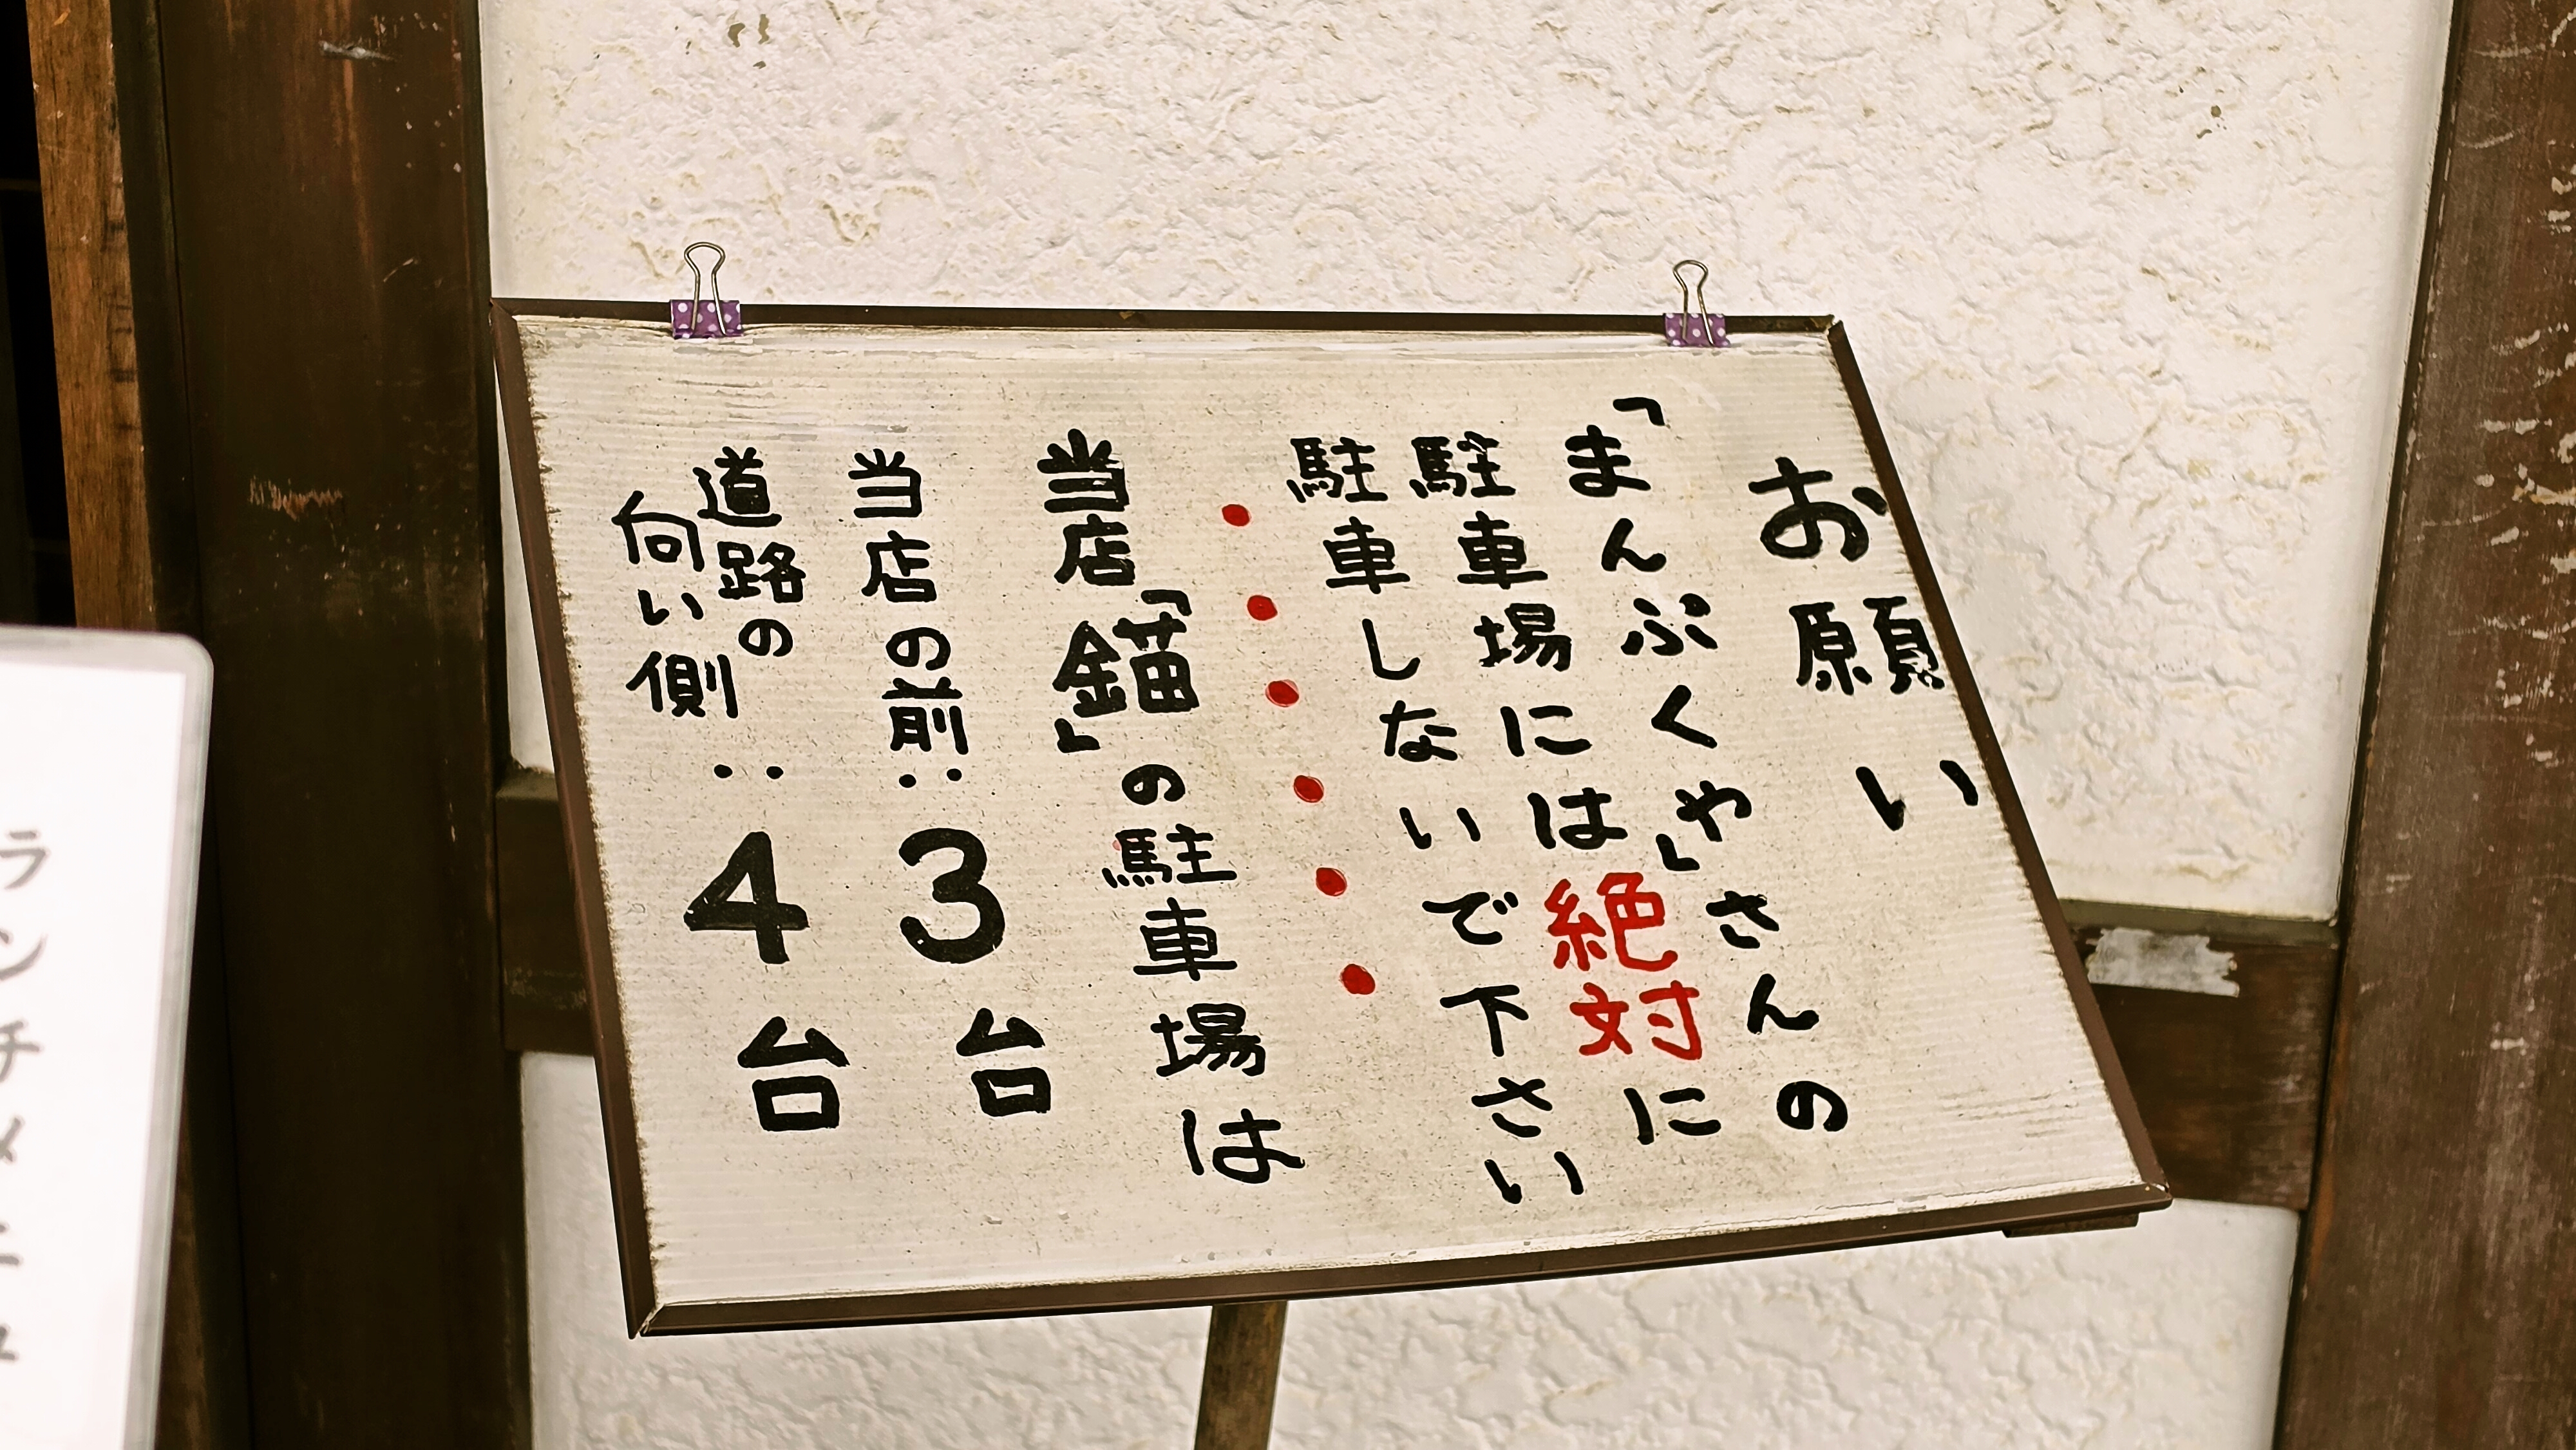 お願い
「まんぷくや」さんの
駐車場には絶対に
駐車しないで下さい
当店「錨」の駐車場は
当店の前‥3台
道路の
向い側‥4台
ランチメニュ